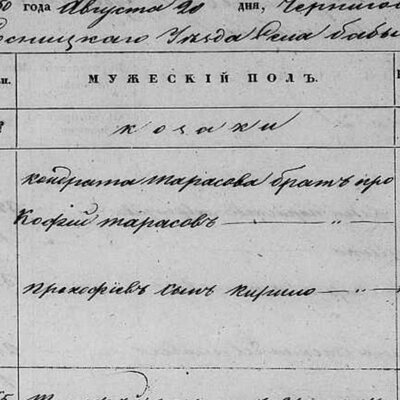 50 года Августа 20 дня, Чернигов
сницкаго Уезда Села бабы
МУЖЕСКІЙ ПОЛЪ.
козаки
кондрата тарасова братъ про
Кофій тарасовъ — " —
прокофіевъ сынъ кирило — "